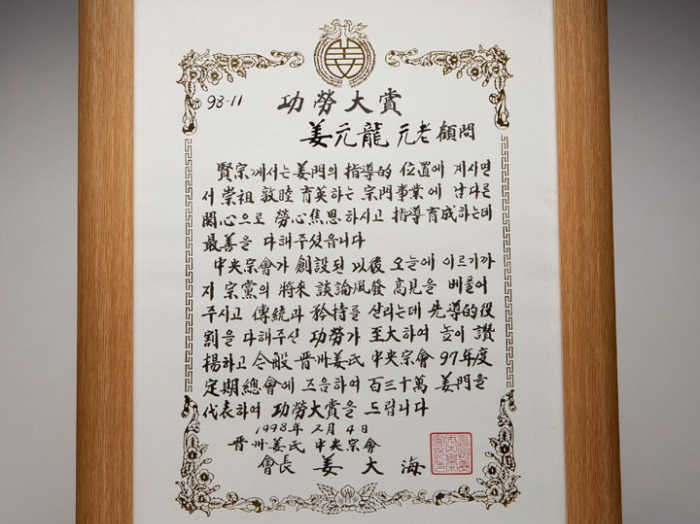 98-11
功勞大賞
姜元龍 元老 顧問
賢宗께서는 姜門의 指導的 位置에 계시면
서 崇祖 敦睦 育英하는 宗門事業에 남다른
関心으로 勞心焦思하시고 指導育成하는데
最善을 다해주셨읍니다
中央宗會가 創設된 以後 오늘에 이르기까
지 宗黨의 將來 談論風發 高見을 베풀어
주시고 傳統과 矜持를 살리는데 先導的役
割을 다해주신 功勞가 至大하여 높이 讚
揚하고 今般 晋州姜氏 中央宗會 97年度
定期總會에 즈음하여 百三十萬 姜門을
代表하여 功勞大賞을 드립니다
1998年 2月 4日
晋州姜氏 中央宗會
會長 姜大海